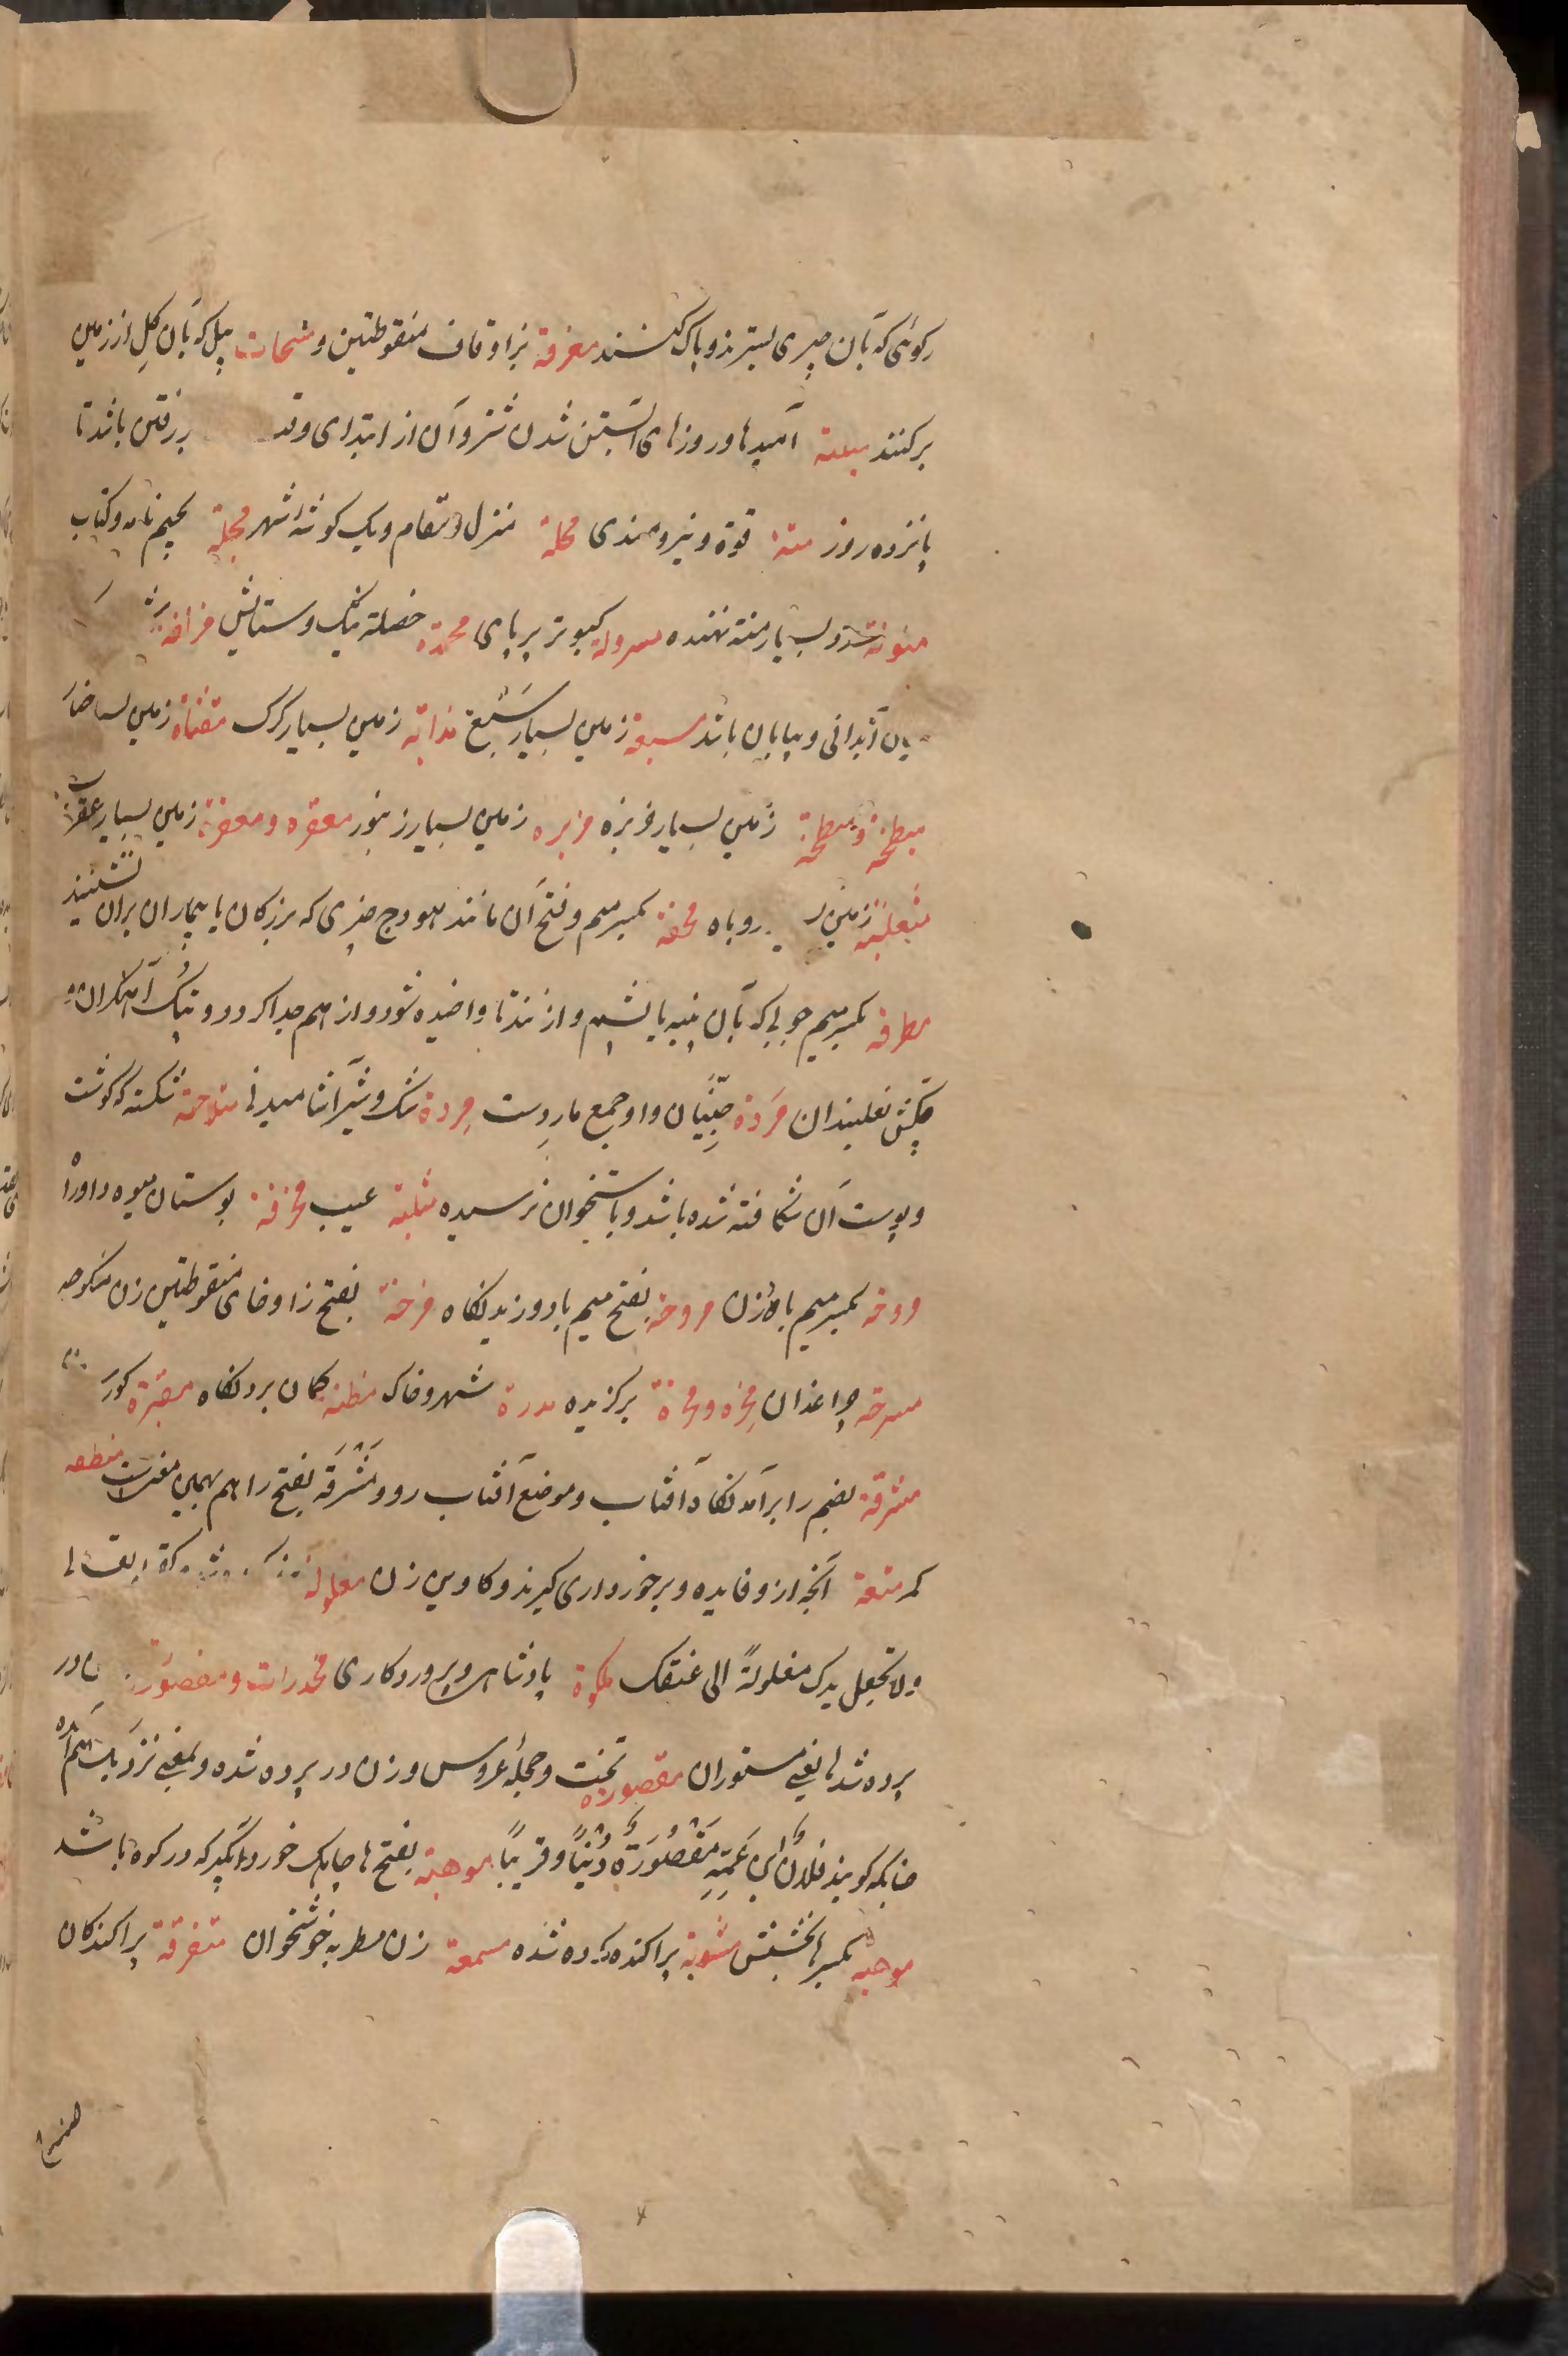 رکوئی که بآن چیزی بسترند و پاک کنند معزقة بزا و قاف منقوطتین و مسحات بیل که بآن کل از زمین
برکنند منیة امیدها و روزهای آبستن شدن شتر و آن از ابتدای وقت
پانزده روز منة قوة و نیرومندی محلة منزل و مقام و یک کوشهٔ شهر مجلة بجیم نامه و کتاب
منونة بسیار منت نهنده مسرولة کبوتر پر پای محمدة خصلة نیک و ستایش مزالفة
آبدانی و بیابان باشد مسبعة زمین بسیار سَبُع مذابة زمین بسیار کرک مقثاة زمین بسیار خیار
مبطخة و مبطخة زمین بسیار خربزه مزبرة زمین بسیار زنبور معقرة و معقربة زمین بسیار عقرب
مثعلبة زمین روباه محفة بکسر میم و فتح آن مانند هودج چیزی که بزرکان یا بیماران بران نشینند
مطرقة بکسر میم چوبی که بآن پنبه یا پشم وا زنند تا واخیده شود و از هم جدا کردد و پتک آهنکران و
چکش نعلبندان مَرَدة جنّیان و او جمع مارد است مِردة متلاحمة شکسته که کوشت
و پوست آن شکافته شده باشد و باستخوان نرسیده مثلبة عیب مخرفة بوستان میوه
مروحة بکسر میم بادزن مروحة بفتح میم باد وزیدنکاه مزخة بفتح زا و خای منقوطتین زن منکوحه
مسرجة چراغدان برکزیده مدرة شهر و خاک مظنة کمان بردنکاه مقبرة کور
مشرقة بضم را برآمدنکاه آفتاب و موضع آفتاب رو و مَشْرَقَة بفتح را هم بهمین معنیست منطقة
کمر متعة آنچه ازو فایده و برخورداری کیرند و کاوین زن مغلولة
ولا تجعل یدک مغلولةً الی عنقک ملکة پادشاهی و پروردکاری مخدرات و مقصورة در
پرده شدها یعنی مستوران مقصوره تخت و حجلهٔ عروس و زن در پرده شده و بمعنی نزدیک هم آمده
چنانکه کویند فلانٌ ابن عَمِّهِ مَقْصُورَةً دُنْیًا و قریبًا موهبة بفتح ها چاهک خورد آبکیر که در کوه باشد
موهبة بکسر ها بخشش مبثوثة پراکنده کرده شده مسمعة زن مطربه خوشخوان متفرقة پراکندکان